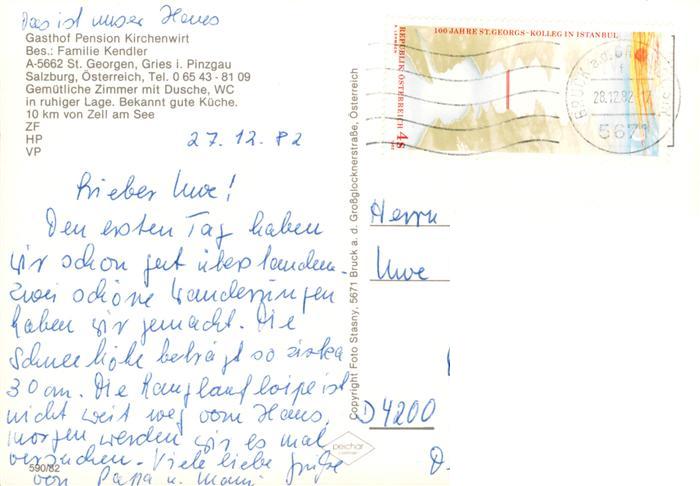 Das ist unser Haus
Gasthof Pension Kirchenwirt
Bes.: Familie Kendler
A-5662 St. Georgen, Gries i. Pinzgau
Salzburg, Österreich, Tel. 0 65 43 - 81 09
Gemütliche Zimmer mit Dusche, WC
in ruhiger Lage. Bekannt gute Küche.
10 km von Zell am See
ZF
HP
VP
27.12.82
Lieber Uwe!
Den ersten Tag haben
wir schon gut überstanden.
Zwei schöne Wanderungen
haben wir gemacht. Die
Schneehöhe beträgt so zirka
30 cm. Die Langlaufloipe ist
nicht weit weg vom Haus,
morgen werden wir es mal
versuchen. Viele liebe Grüße
von Papa u. Mami
590/82
Copyright Foto Stasny, 5671 Bruck a. d. Großglocknerstraße, Österreich
peichar
100 JAHRE ST. GEORGS-KOLLEG IN ISTANBUL
REPUBLIK ÖSTERREICH 4S
BRUCK a.d.
28.12.82-17
5671
Herrn
Uwe
D 4200
D-